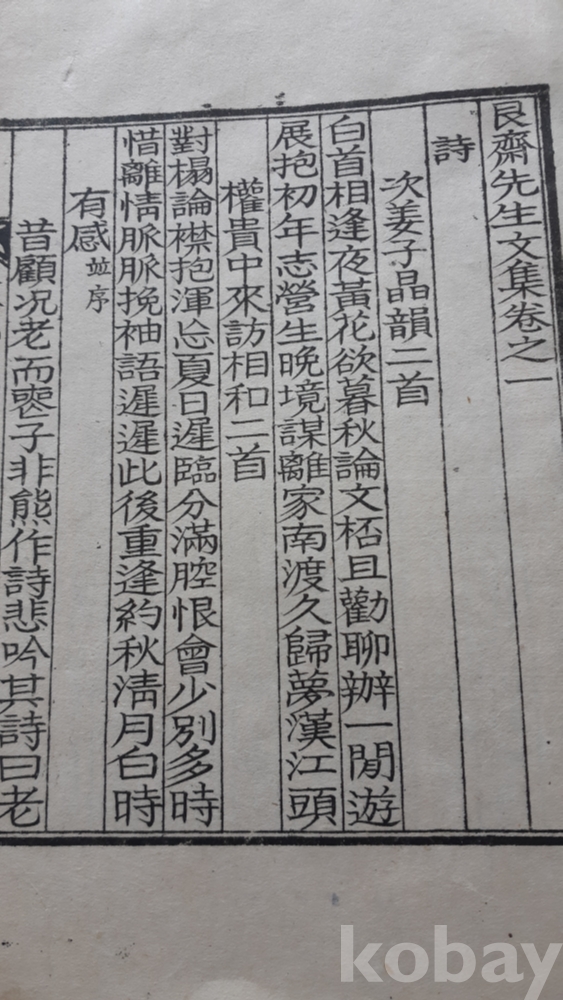 艮齋先生文集卷之一
詩
次姜子晶韻二首
白首相逢夜黃花欲暮秋論文桮且勸聊辦一閒遊
展抱初年志營生晚境謀離家南渡久歸夢漢江頭
權貴中來訪相和二首
對榻論襟抱渾忘夏日遲臨分滿腔恨會少別多時
惜離情脈脈挽袖語遲遲此後重逢約秋淸月白時
有感並序
昔顧况老而喪子非熊作詩悲吟其詩曰老
kobay